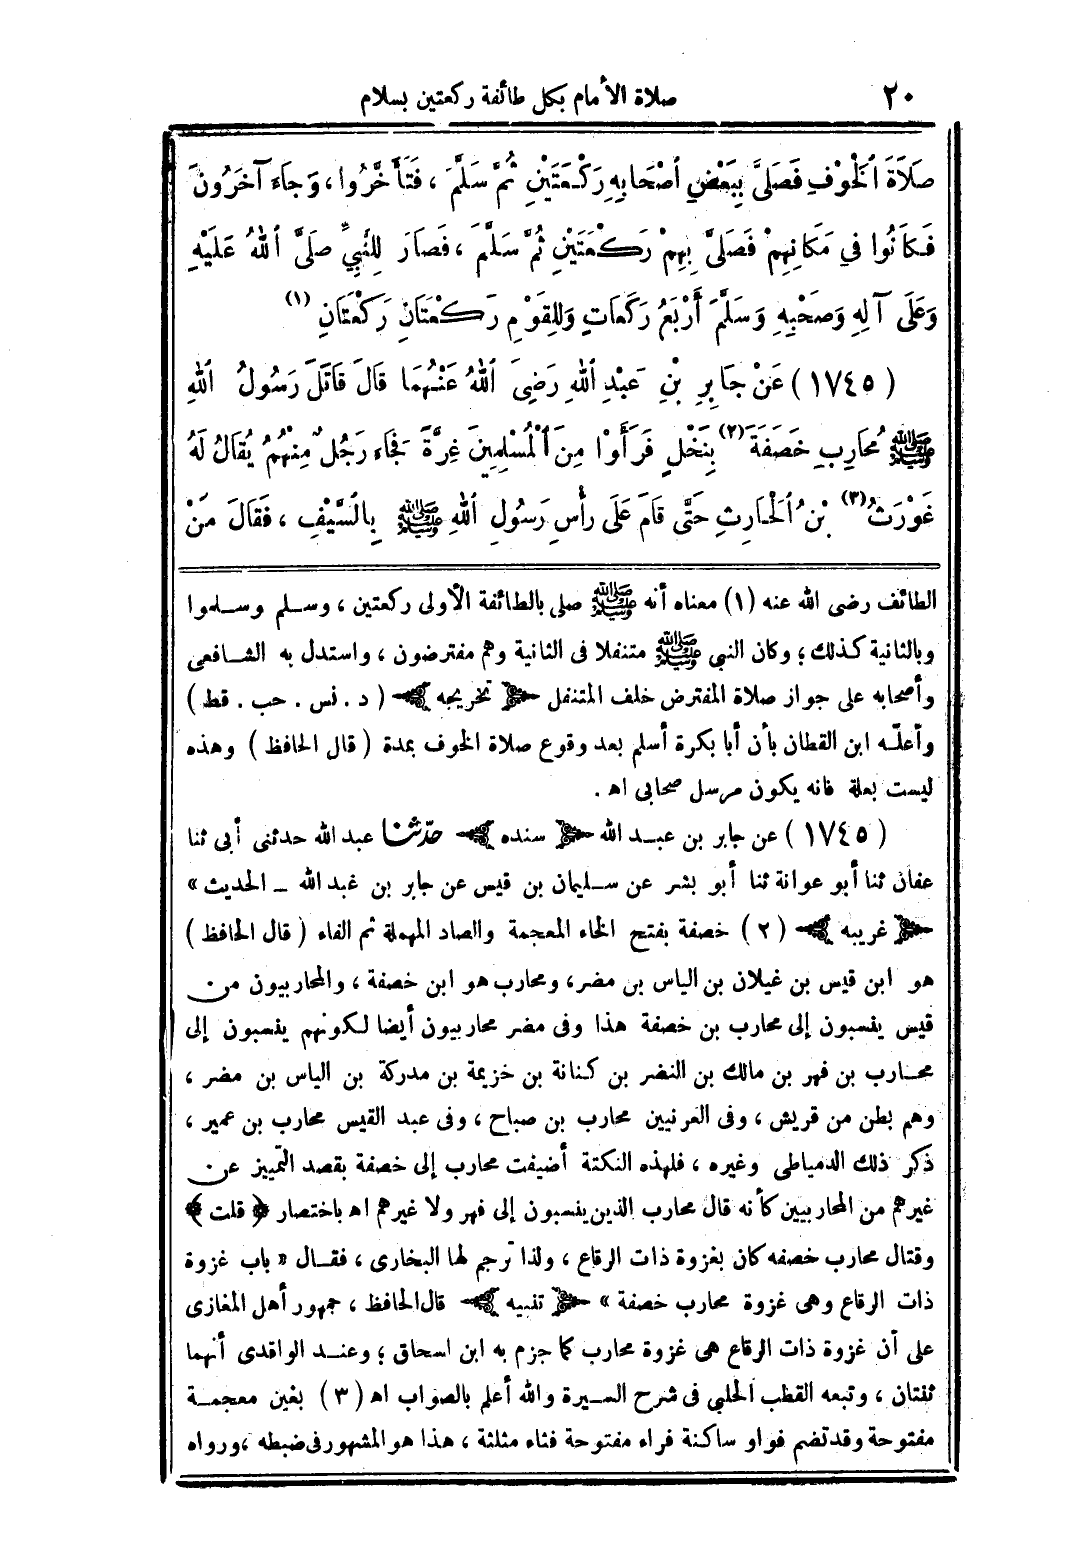 ٢٠ صلاة الأمام بكل طائفة ركعتين بسلام
صَلَاةَ الْخَوْفِ فَصَلَّى بِبَعْضِ أَصْحَابِهِ رَكْعَتَيْنِ ثُمَّ سَلَّمَ ، فَتَأَخَّرُوا ، وَجَاءَ آخَرُونَ
فَكَانُوا فِي مَكَانِهِمْ فَصَلَّى بِهِمْ رَكْعَتَيْنِ ثُمَّ سَلَّمَ ، فَصَارَ لِلنَّبِيِّ صَلَّى اللهُ عَلَيْهِ
وَعَلَى آلِهِ وَصَحْبِهِ وَسَلَّمَ أَرْبَعُ رَكَعَاتٍ وَلِلْقَوْمِ رَكْعَتَانِ رَكْعَتَانِ (١)
(١٧٤٥) عَنْ جَابِرِ بْنِ عَبْدِ اللهِ رَضِيَ اللهُ عَنْهُمَا قَالَ قَاتَلَ رَسُولُ اللهِ
ﷺ مُحَارِبِ خَصَفَةَ (٢) بِنَخْلٍ فَرَأَوْا مِنَ الْمُسْلِمِينَ غِرَّةً فَجَاءَ رَجُلٌ مِنْهُمْ يُقَالُ لَهُ
غَوْرَثُ (٣) بْنُ الْحَارِثِ حَتَّى قَامَ عَلَى رَأْسِ رَسُولِ اللهِ ﷺ بِالسَّيْفِ ، فَقَالَ مَنْ
الطائف رضى الله عنه (١) معناه أنه ﷺ صلى بالطائفة الأولى ركعتين ، وسلم وسلموا
وبالثانية كذلك ؛ وكان النبي ﷺ متنفلا فى الثانية وهم مفترضون ، واستدل به الشافعى
وأصحابه على جواز صلاة المفترض خلف المتنفل ﴿ تخريجه ﴾ ( د . نس . حب . قط )
وأعلّه ابن القطان بأن أبا بكرة أسلم بعد وقوع صلاة الخوف بمدة ( قال الحافظ ) وهذه
ليست بعلة فانه يكون مرسل صحابى اهـ .
(١٧٤٥) عن جابر بن عبد الله ﴿ سنده ﴾ حدّثنا عبد الله حدثنى أبى ثنا
عفان ثنا أبو عوانة ثنا أبو بشر عن سليمان بن قيس عن جابر بن عبد الله ــ الحديث »
﴿ غريبه ﴾ (٢) خصفة بفتح الخاء المعجمة والصاد المهملة ثم الفاء ( قال الحافظ )
هو ابن قيس بن غيلان بن الياس بن مضر، ومحارب هو ابن خصفة ، والمحاربيون من
قيس ينسبون إلى محارب بن خصفة هذا وفى مضر محاربيون أيضا لكونهم ينسبون إلى
محارب بن فهر بن مالك بن النضر بن كنانة بن خزيمة بن مدركة بن الياس بن مضر ،
وهم بطن من قريش ، وفى العرنيين محارب بن صباح ، وفى عبد القيس محارب بن عمير ،
ذكر ذلك الدمياطى وغيره ، فلهذه النكتة أضيفت محارب إلى خصفة بقصد التمييز عن
غيرهم من المحاربيين كأنه قال محارب الذين ينسبون إلى فهر ولا غيرهم اهـ باختصار ﴿ قلت ﴾
وقتال محارب خصفه كان بغزوة ذات الرقاع ، ولذا ترجم لها البخارى ، فقال « باب غزوة
ذات الرقاع وهى غزوة محارب خصفة » ﴿ تنبيه ﴾ قال الحافظ ، جمهور أهل المغازى
على أن غزوة ذات الرقاع هى غزوة محارب كما جزم به ابن اسحاق ؛ وعند الواقدى أنهما
ثنتان ، وتبعه القطب الحلبي فى شرح السيرة والله أعلم بالصواب اهـ (٣) بغين معجمة
مفتوحة وقد تضم فواو ساكنة فراء مفتوحة فثاء مثلثة ، هذا هو المشهور فى ضبطه ،ورواه